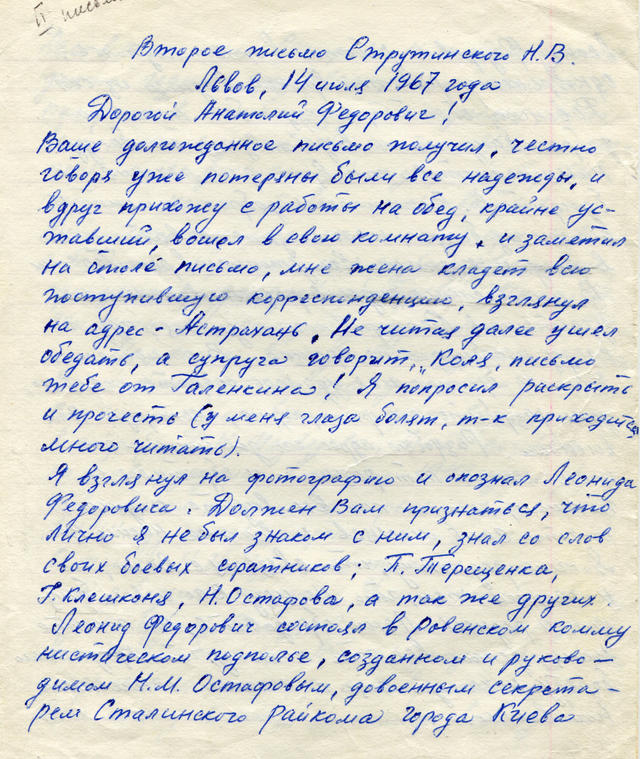 II письмо
Второе письмо Струтинского Н.В.
Львов, 14 июля 1967 года
Дорогой Анатолий Федорович!
Ваше долгожданное письмо получил, честно
говоря уже потеряны были все надежды, и
вдруг прихожу с работы на обед, крайне ус-
тавший, вошел в свою комнату, и заметил
на столе письмо, мне жена кладет всю
поступившую корреспонденцию, взглянул
на адрес - Астрахань. Не читая далее ушел
обедать, а супруга говорит, „Коля, письмо
тебе от Галенкина! Я попросил раскрыть
и прочесть (у меня глаза болят, т-к приходится
много читать).
Я взглянул на фотографию и опознал Леонида
Федоровиса. Должен Вам признаться, что
лично я не был знаком с ним, знал со слов
своих боевых соратников; П. Терещенка,
Г. Клешконя, Н. Остафова, а так же других.
Леонид Федорович состоял в Ровенском комму
нистическом подполье, созданном и руково-
димом Н.М. Остафовым, довоенным секрета-
рем Сталинского райкома города Киева